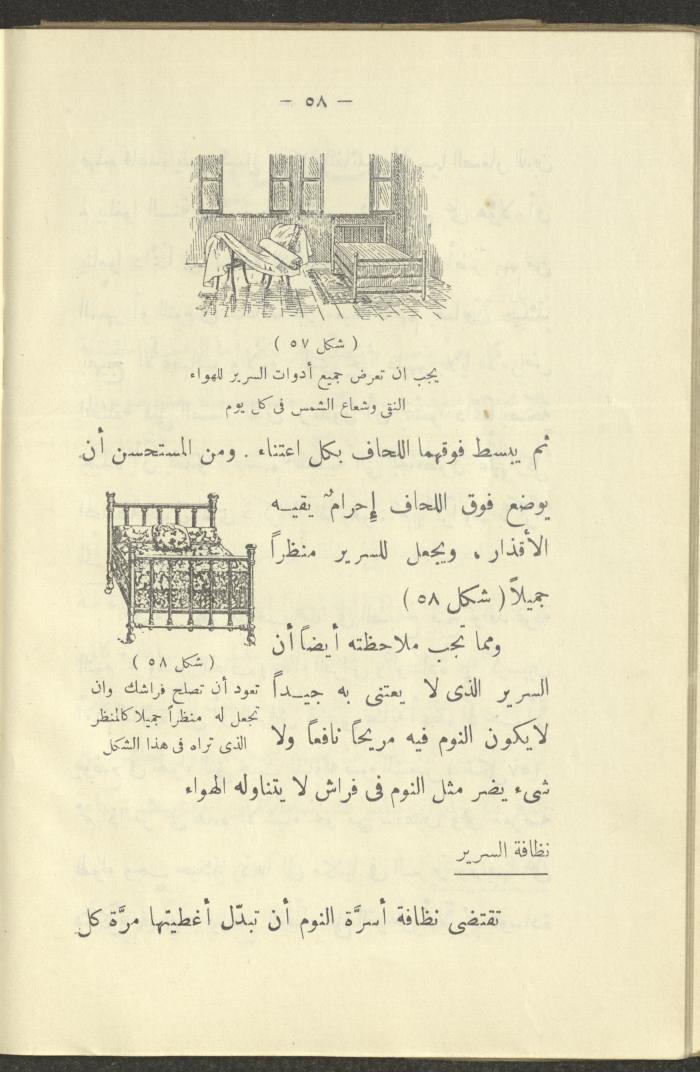 — ٥٨ —
( شكل ٥٧ )
يجب ان تعرض جميع أدوات السرير للهواء
النقى وشعاع الشمس فى كل يوم
ثم يبسط فوقهما اللحاف بكل اعتناء . ومن المستحسن أن
يوضع فوق اللحاف إِحرامٌ يقيـه
الأقذار ، ويجعل للسرير منظراً
جميلاً ( شكل ٥٨ )
ومما تجب ملاحظته أيضاً أن
السرير الذى لا يعتنى به جيـداً
لايكون النوم فيه مريحاً نافعاً ولا
شىء يضر مثل النوم فى فراش لا يتناوله الهواء
( شكل ٥٨ )
تعود أن تصلح فراشك وان
تجعل له منظراً جميلا كالمنظر
الذى تراه فى هذا الشكل
نظافة السرير
تقتضى نظافة أسرَّة النوم أن تبدّل أغطيتها مرَّة كل